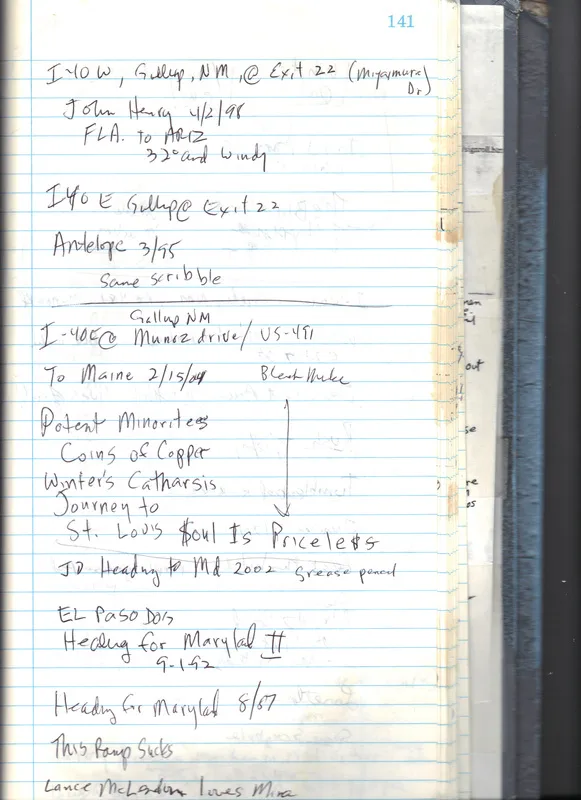 141
I-40 W, Gallup, NM, @ Exit 22 (Miyamura Dr)
John Henry 4/2/98
FLA. to ARIZ
32° and windy
I40 E Gallup @ Exit 22
Antelope 3/95
Same scribble
Gallup NM
I-40E@ Munoz drive/ US-491
To Maine 2/15/04
Potent Minorites
Coins of Copper
Winter's Catharsis
Journey to
St. Louis $oul Is Pricele$s
JD Heading to Md 2002 Grease pencil
EL PASO
Heading for Maryland II
9-1-92
Heading for Maryland 8/87
This Ramp Sucks
Lance loves Mira